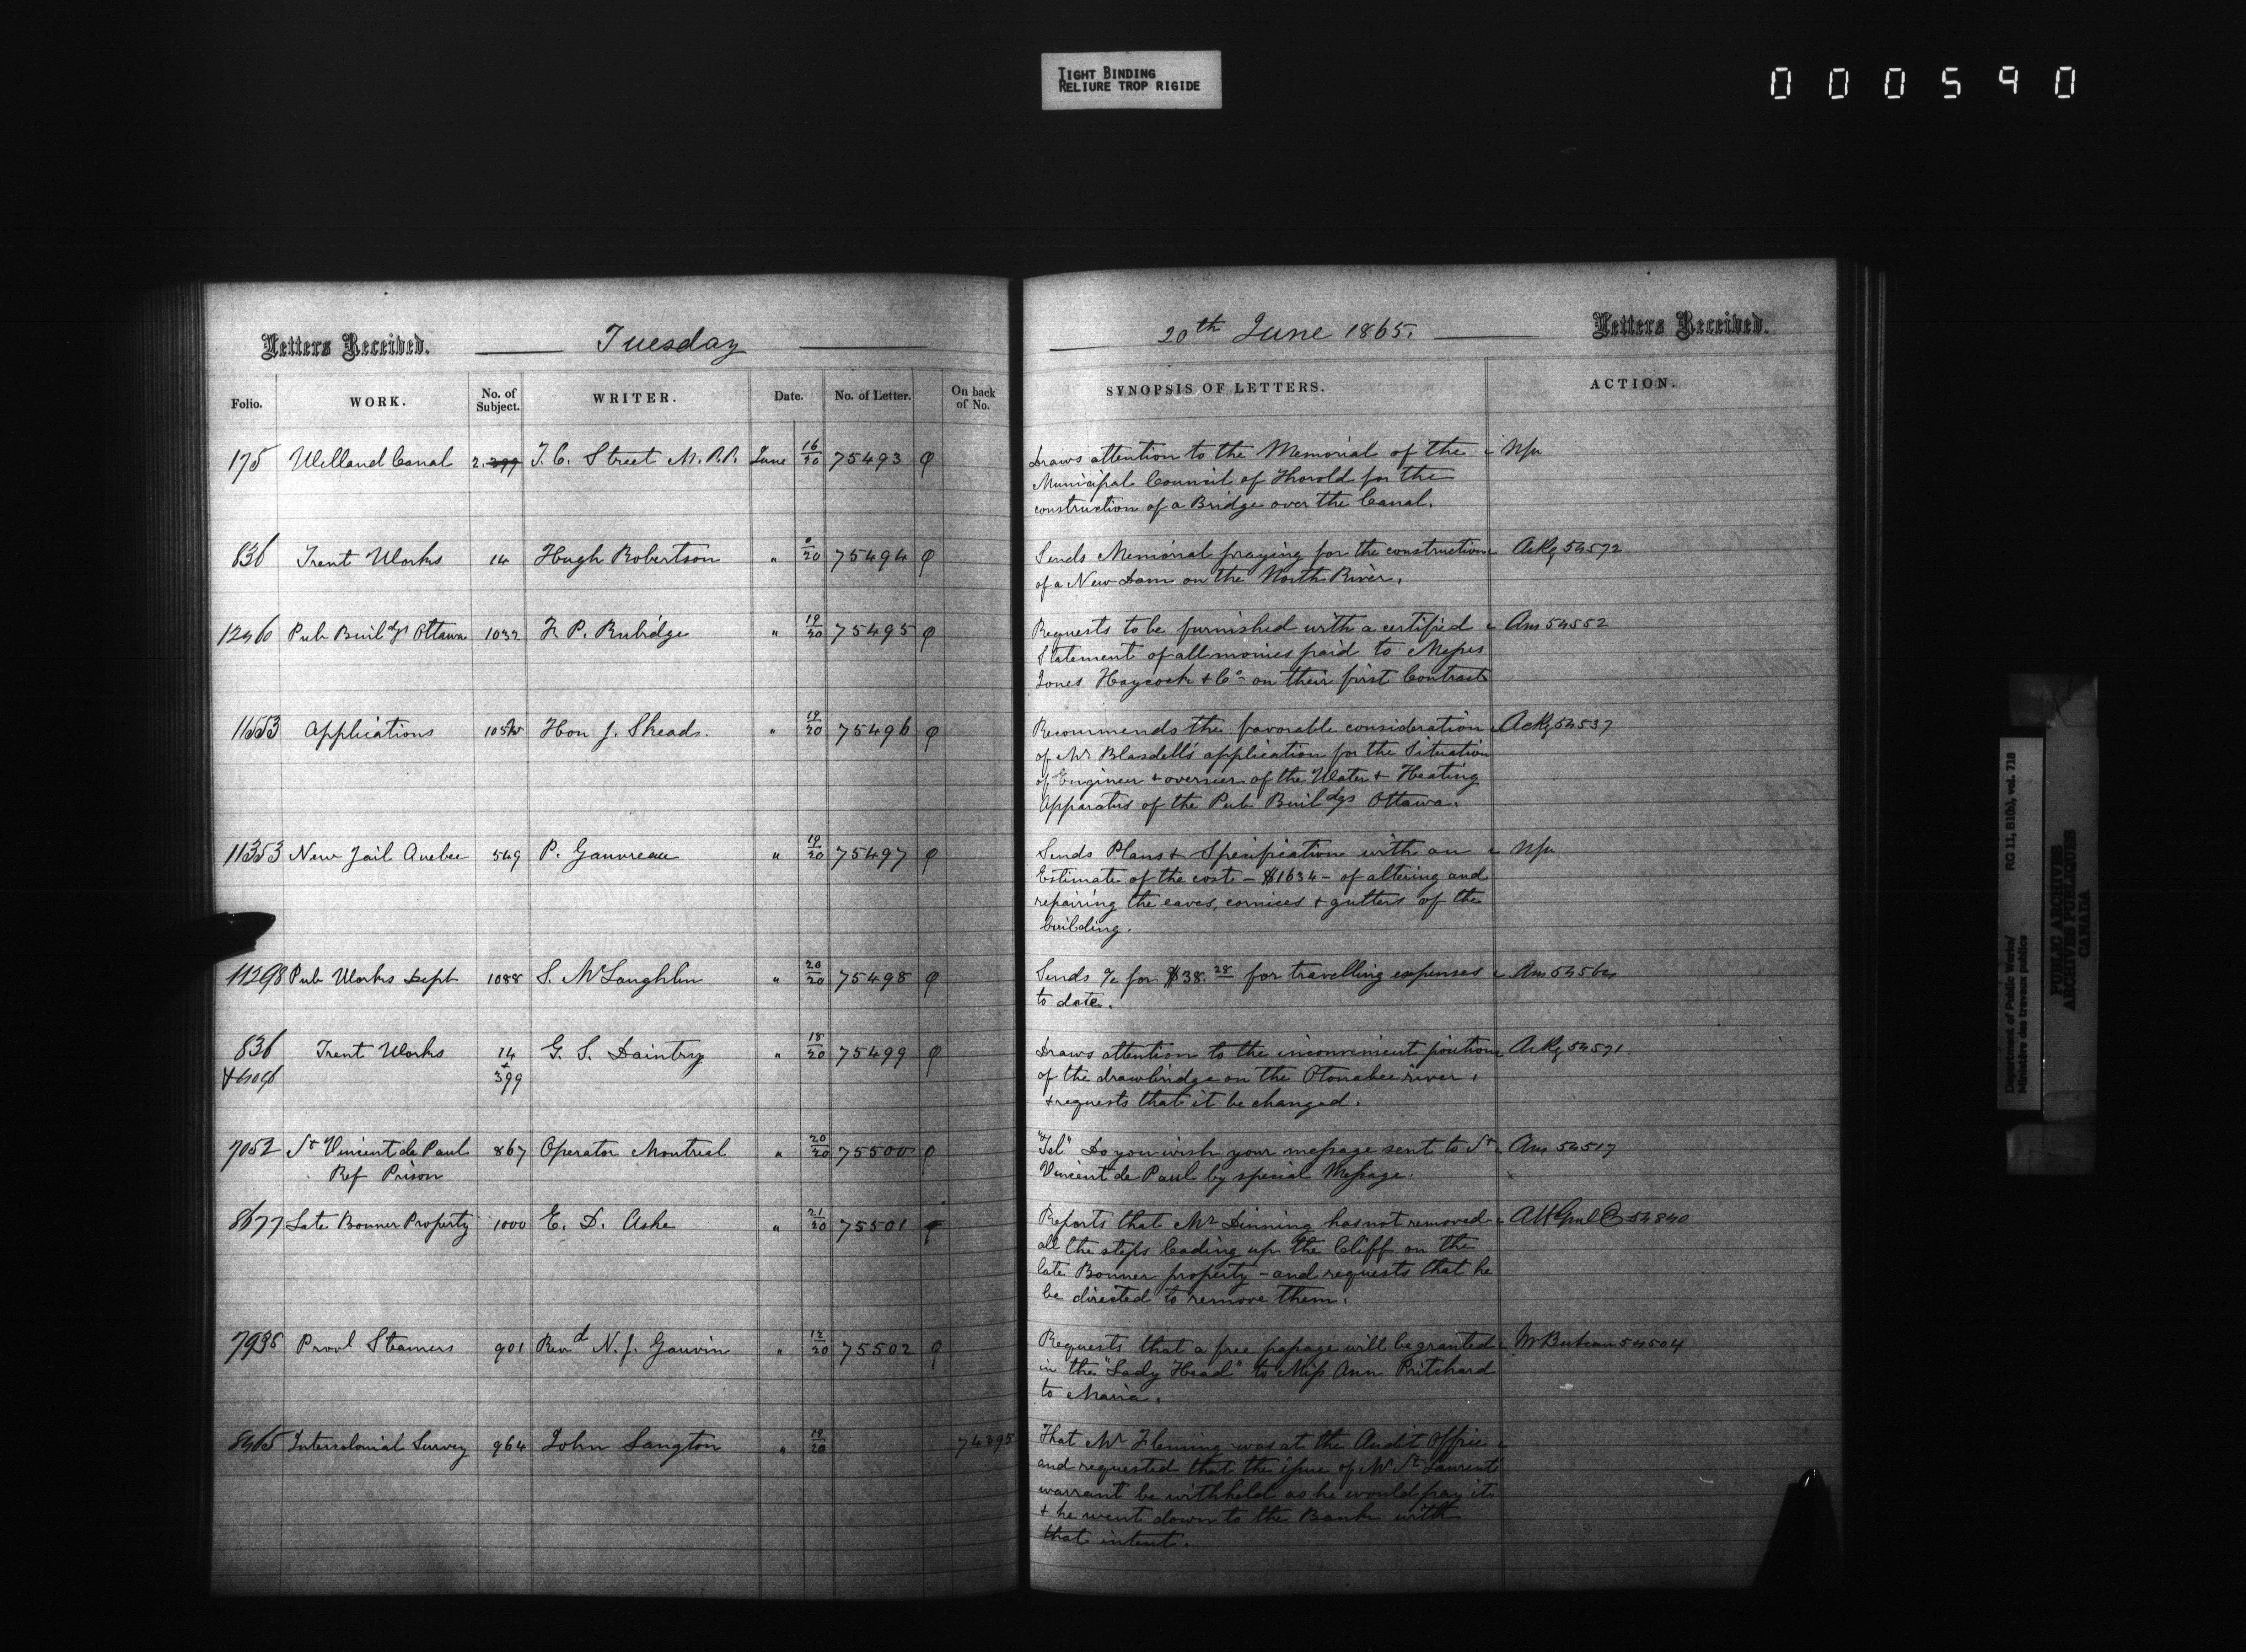 TIGHT BINDING
RELIURE TROP RIGIDE
000590
Letters Received. Tuesday
Folio. WORK. No. of Subject. WRITER. Date. No. of Letter. On back of No.
175 Welland Canal 2. 399 T. C. Street M.P.P. June 16/20 75493
836 Trent Works 14 Hugh Robertson " 0/20 75494
1246 Pub Buildgs Ottawa 1032 F. P. Rubidge " 19/20 75495
11553 Applications Hon J. Skeads. " 19/20 75496
11353 New Jail Quebec 549 P. Gauvreau " 19/20 75497
11298 Pub Works Dept 1088 S. McLaughlin " 20/20 75498
836 Trent Works 14 G. S. Daintry " 18/20 75499
+ 399
7052 St Vincent de Paul 867 Operator Montreal " 20/20 75500
Ref Prison
8677 Late Bonner Property 1000 E. D. Ashe " 21/20 75501
7938 Provl Steamers 901 Revd N. J. Gauvin " 12/20 75502
8465 Intercolonial Survey 964 John Langton " 19/20 74395
20th June 1865. Letters Received.
SYNOPSIS OF LETTERS. ACTION.
Draws attention to the Memorial of the
Municipal Council of Thorold for the
construction of a Bridge over the Canal.
Sends Memorial praying for the construction Ackg 54572
of a New Dam on the North River.
Requests to be furnished with a certified Ans 54552
Statement of all monies paid to Messrs
Jones Haycock & Co on their first Contract
Recommends the favorable consideration Ackg 54537
of Mr Blasdell's application for the Situation
of Engineer & overseer of the Water & Heating
Apparatus of the Pub Buildgs Ottawa.
Sends Plans & Specification with an
Estimate of the cost - $1634 - of altering and
repairing the eaves, cornices & gutters of the
building.
Sends a/c for $38.28 for travelling expenses Ans
to date.
Draws attention to the inconvenient position Ackg 54571
of the drawbridge on the Otonabee river,
& requests that it be changed.
"Tel" Do you wish your message sent to St Ans 54517
Vincent de Paul by special Message.
Reports that Mr Dinning has not removed 54840
all the steps leading up the Cliff on the
late Bonner property - and requests that he
be directed to remove them.
Requests that a free passage will be granted 54504
in the "Lady Head" to Miss Ann Pritchard
to Maria.
That Mr Fleming was at the Audit Office
and requested that the issue of Mr St Laurent's
warrant be withheld as he would pay it
& he went down to the Bank with
that intent.
Department of Public Works/ RG 11, B1(b), vol. 718
Ministère des travaux publics
PUBLIC ARCHIVES
ARCHIVES PUBLIQUES
CANADA